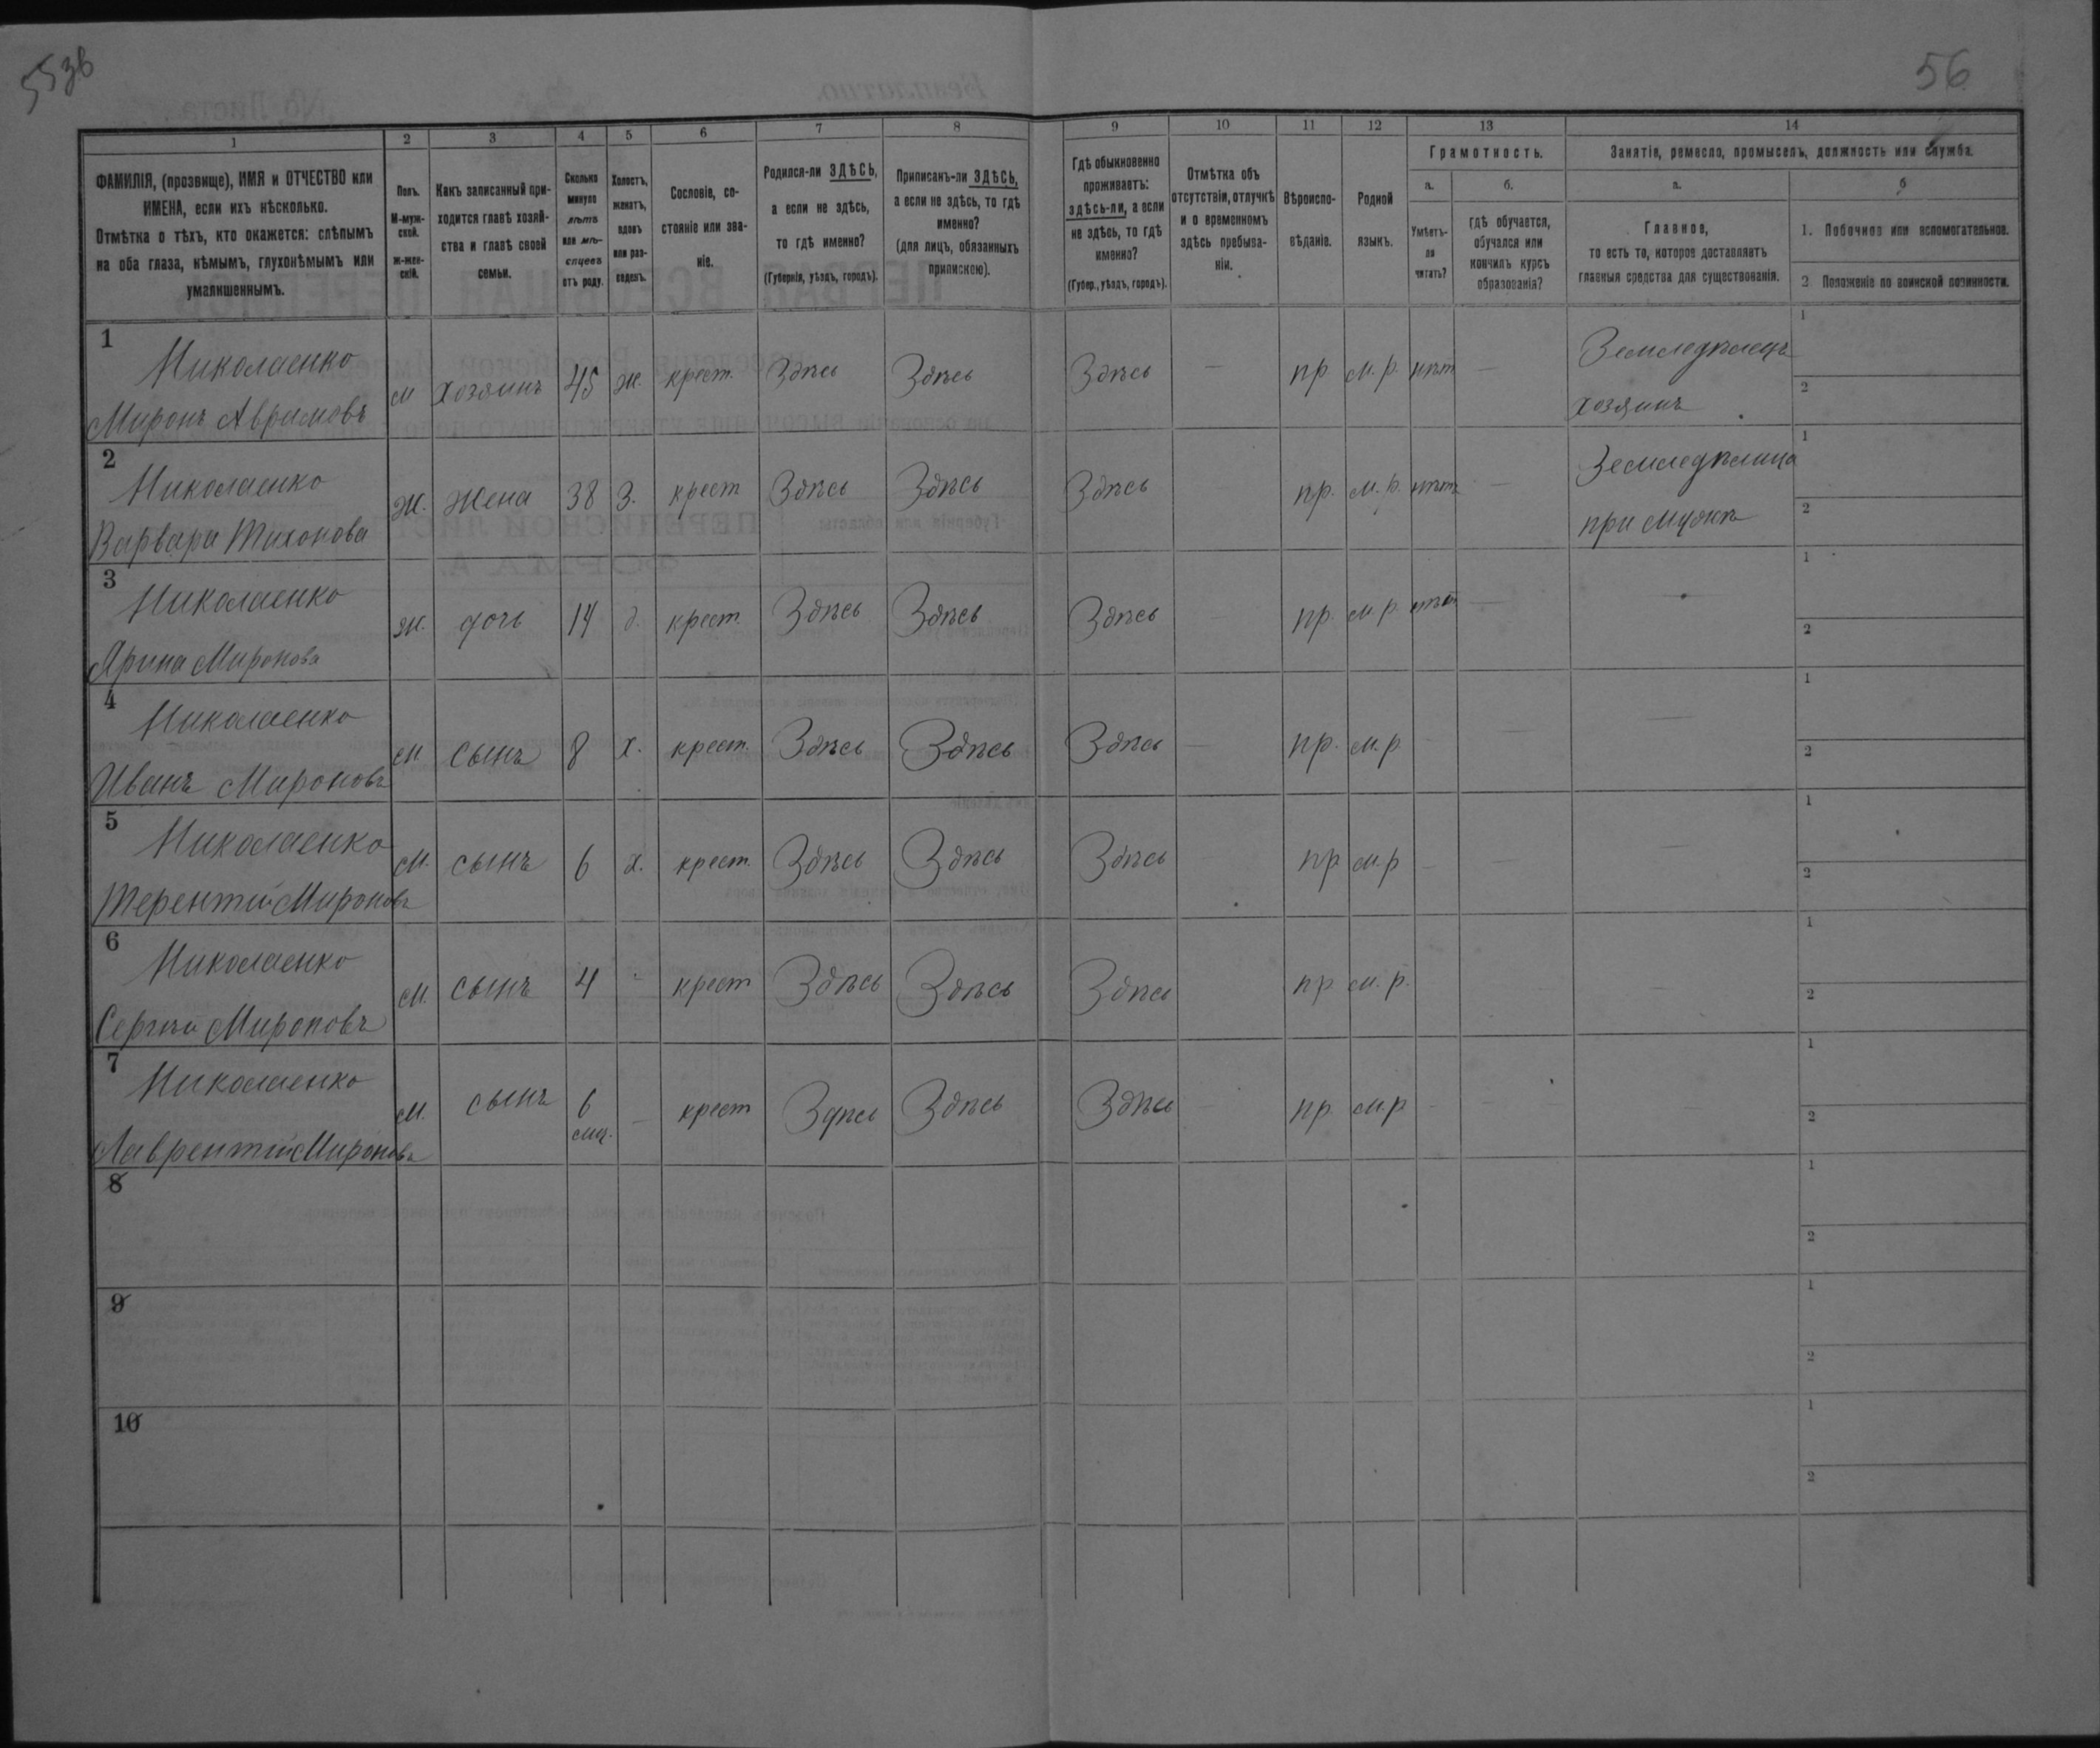 55зв
56
1 2 3 4 5 6 7 8 9 10 11 12 13 14
ФАМИЛІЯ, (прозвище), ИМЯ и ОТЧЕСТВО или
ИМЕНА, если ихъ нѣсколько.
Отмѣтка о тѣхъ, кто окажется: слѣпымъ
на оба глаза, нѣмымъ, глухонѣмымъ или
умалишеннымъ.
Полъ.
М-муж-
ской.
Ж-жен-
скій.
Какъ записанный при-
ходится главѣ хозяй-
ства и главѣ своей
семьи.
Сколько
минуло
лѣтъ
или мѣ-
сяцевъ
отъ роду.
Холостъ,
женатъ,
вдовъ
или раз-
веденъ.
Сословіе, со-
стояніе или зва-
ніе.
Родился-ли ЗДѢСЬ,
а если не здѣсь,
то гдѣ именно?
(Губернія, уѣздъ, городъ).
Приписанъ-ли ЗДѢСЬ,
а если не здѣсь, то гдѣ
именно?
(для лицъ, обязанныхъ
припискою).
Гдѣ обыкновенно
проживаетъ:
здѣсь-ли, а если
не здѣсь, то гдѣ
именно?
(Губер., уѣздъ, городъ).
Отмѣтка объ
отсутствіи, отлучкѣ
и о временномъ
здѣсь пребыва-
ніи.
Вѣроиспо-
вѣданіе.
Родной
языкъ.
Грамотность.
а.
Умѣетъ-
ли
читать?
б.
гдѣ обучается,
обучался или
кончилъ курсъ
образованія?
Занятія, ремесло, промыселъ, должность или служба.
а.
Главное,
то есть то, которое доставляетъ
главныя средства для существованія.
б
1. Побочное или вспомогательное.
2 Положеніе по воинской повинности.
1
Николаенко
Миронъ Аврамовъ
м хозяинъ 45 ж. крест. Здѣсь Здѣсь Здѣсь — пр. м. р. нѣт —
Земледѣлецъ
хозяинъ
1
2
2
Николаенко
Варвара Тихонова
ж. жена 38 З. крест Здѣсь Здѣсь Здѣсь пр. м. р. нѣтъ —
Земледѣлица
при мужѣ
1
2
3
Николаенко
Ярина Миронова
ж. дочь 14 д. крест. Здѣсь Здѣсь Здѣсь пр. м. р. нѣт —
1
2
4
Николаенко
Иванъ Мироновъ
м. сынъ 8 х. крест. Здѣсь Здѣсь Здѣсь — пр. м. р - — —
1
2
5
Николаенко
Терентій Мироновъ
м. сынъ 6 х. крест. Здѣсь Здѣсь Здѣсь пр м. р — — —
1
2
6
Николаенко
Сергѣй Мироновъ
м. сынъ 4 - крест Здѣсь Здѣсь Здѣсь пр м. р. — —
1
2
7
Николаенко
Лаврентій Мироновъ
м. сынъ 6 — крест Здѣсь Здѣсь Здѣсь — пр. м. р - — —
1
2
8
1
2
9
1
2
10
1
2